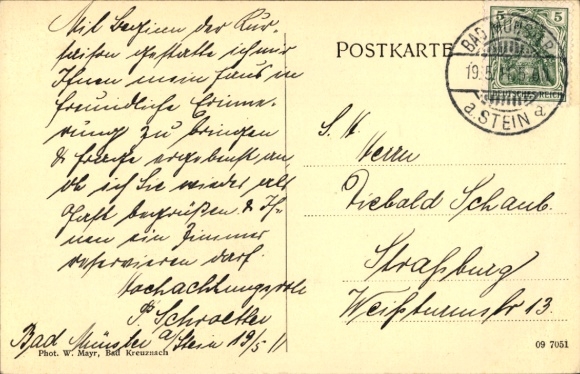 Mit Beginn der Kur-
saison gestatte ich mir
Ihnen mein Haus in
freundliche Erinne-
rung zu bringen
& frage ergebenst an,
ob ich Sie wieder als
Gast begrüßen & Ih-
nen ein Zimmer
reservieren darf.
Hochachtungsvoll
Schroetter
Bad Münster a/Stein 19/5 11
Phot. W. Mayr, Bad Kreuznach
POSTKARTE
5 5
BAD MÜNSTER
19.5.
a. STEIN a
S. H.
Herrn
Diebald Schaub.
Straßburg
Weißturmstr 13.
09 7051